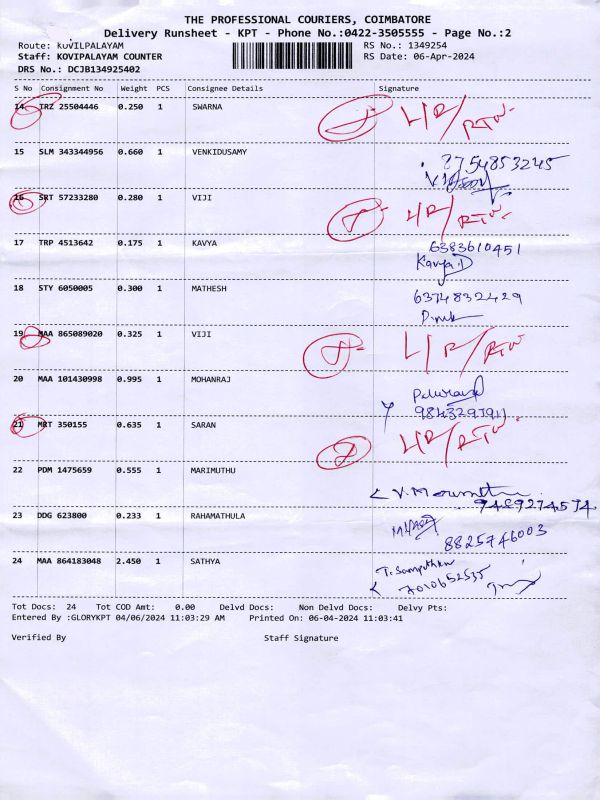 THE PROFESSIONAL COURIERS, COIMBATORE
Delivery Runsheet - KPT - Phone No.:0422-3505555 - Page No.:2
Route: KOVILPALAYAM RS No.: 1349254
Staff: KOVIPALAYAM COUNTER RS Date: 06-Apr-2024
DRS No.: DCJB134925402
S No Consignment No Weight PCS Consignee Details Signature
14 TRZ 25504446 0.250 1 SWARNA L/R/RTN
15 SLM 343344956 0.660 1 VENKIDUSAMY 8754853245
16 SRT 57233280 0.280 1 VIJI L/R/RTN
17 TRP 4513642 0.175 1 KAVYA 6383610451
Kavya.D
18 STY 6050005 0.300 1 MATHESH 6374832429
19 MAA 865089020 0.325 1 VIJI L/R/RTN
20 MAA 101430998 0.995 1 MOHANRAJ
21 MRT 350155 0.635 1 SARAN L/R/RTN
22 PDM 1475659 0.555 1 MARIMUTHU
9489274574
23 DDG 623800 0.233 1 RAHAMATHULA
8825746003
24 MAA 864183048 2.450 1 SATHYA
7010652535
Tot Docs: 24 Tot COD Amt: 0.00 Delvd Docs: Non Delvd Docs: Delvy Pts:
Entered By :GLORYKPT 04/06/2024 11:03:29 AM Printed On: 06-04-2024 11:03:41
Verified By Staff Signature